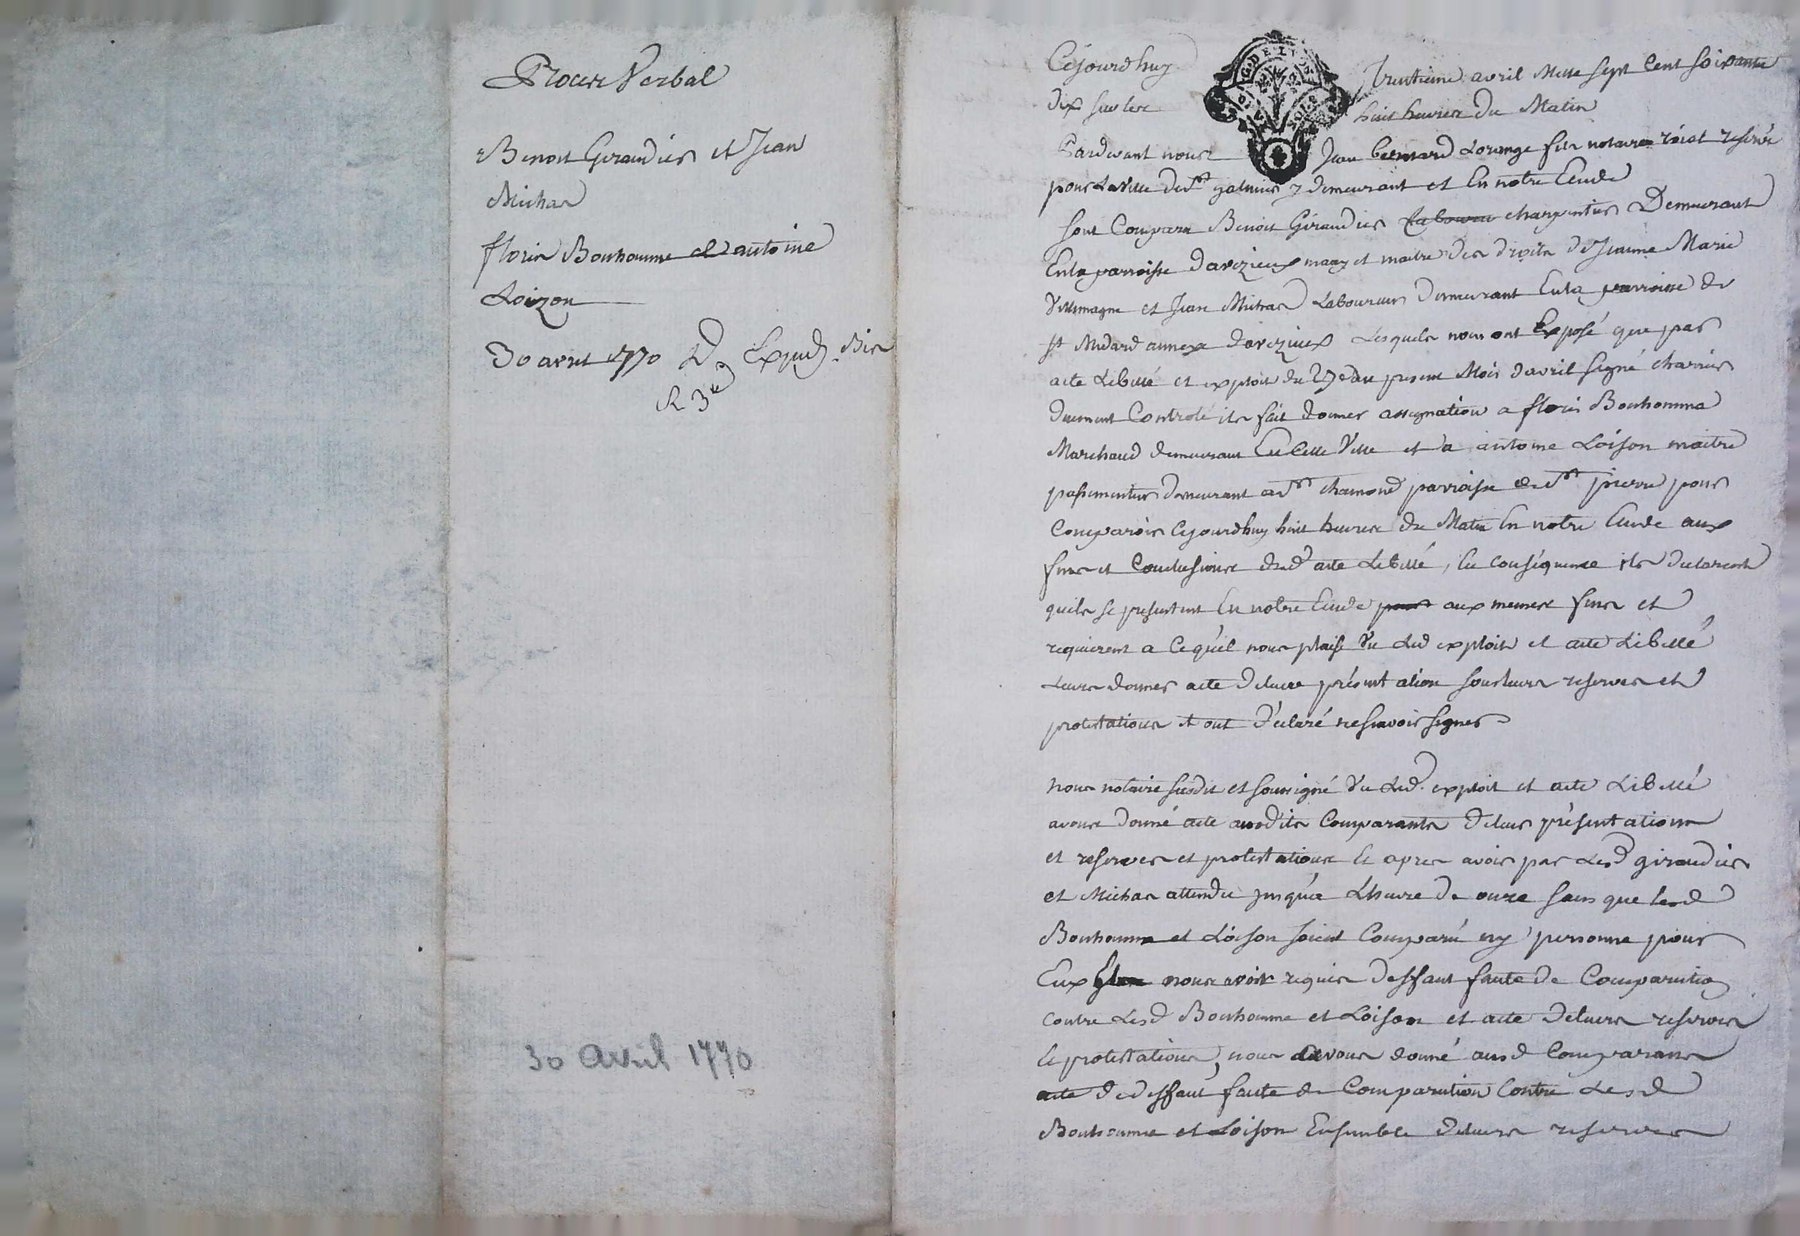 Proces Verbal
Benoit Giraudier et Jean
Michas
florin Bonhomme et antoine
Loizon
30 avril 1770 Expedi. Bis
R 3
30 avril 1770
Cejourdhuy trentieme avril Mille sept Cent soixante
dix sur les huit heures du Matin
Pardevant nous Jean bernard Lorange fils notaire roial reservé
pour la ville de St galmier y demeurant et En notre Etude
sont Comparu Benoit Giraudier laboureur charpentier Demeurant
En la parroisse daveizieux mary et maitre des droits de Jeanne Marie
Villemagne et Jean Michas Laboureur demeurant En la parroisse de
St Medard annexe daveizieux Lesquels nous ont Exposé que par
acte Libellé et exploit du 27e du present Mois davril signé charvier
duement Controlé ils fait donner assignation a florin Bonhomme
Marchand demeurant En Cette Ville et a antoine Loison maitre
passementier demeurant a St chamond parroisse de St pierre pour
Comparoir Cejourdhuy huit heures du Matin En notre Etude aux
fins et Conclusions dud acte Libellé, En conséquence ils declarent
quils se presentent En notre Etude pour aux memes fins et
requierent a Cequ'il nous plaise Vu Led exploit et acte Libellé
Leurs donner acte de leur présentation sous leurs reserves et
protestations et ont déclaré ne scavoir signer
nous notaire susdit et soussigné Vu Led. exploit et acte Libellé
avons donné acte auxdits Comparants de leur présentation
et reserves et protestations Et apres avoir par Lesd giraudier
et Michas attendu jusqu'a Lheure de onze sans que lesd
Bonhomme et Loison soient Comparu ny personne pour
Eux nous avoir requis deffaut faute de Comparution
contre Lesd Bonhomme et Loison et acte de leurs reserves
Et protestations, nous avons donné ausd Comparans
acte de deffaut faute de Comparution Contre Lesd
Bonhomme et Loison Ensemble de leurs reserves